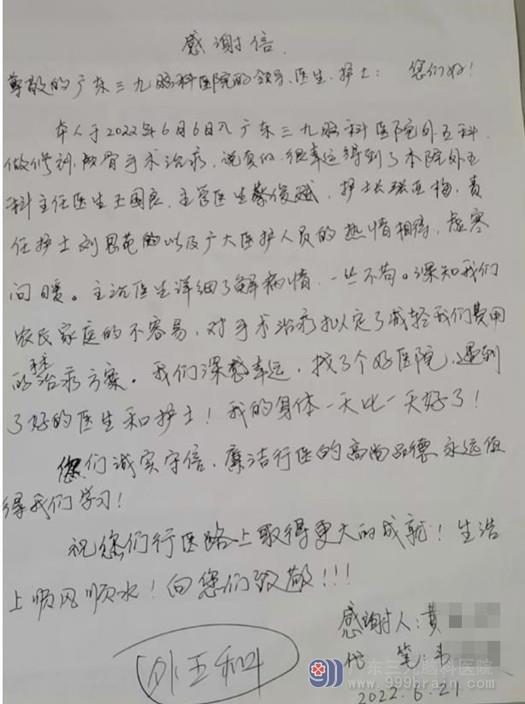 感谢信.
尊敬的广东三九脑科医院的领导、医生、护士: 您们好!
本人于2022年6月6日入广东三九脑科医院外五科.
做修补颅骨手术治疗,说真的.很幸运得到了本院外五
科主任医生王国良、主管医生蔡俊斌,护士长张亚梅,责
任护士刘思苑的以及广大医护人员的热情相待,嘘寒
问暖。主治医生详细了解病情,一丝不苟。深知我们
农民家庭的不容易,对手术治疗拟定了减轻我们费用
的治疗方案。我们深感幸运,找了个好医院,遇到
了好的医生和护士!我的身体一天比一天好了!
您们诚实守信,廉洁行医的高尚品德永远值
得我们学习!
祝您们行医路上取得更大的成就!生活
上顺风顺水!向您们致敬!!!
感谢人:黄
代 笔:韦
2022.6.21
外五科
东三九脑科医院
www.999brain.com